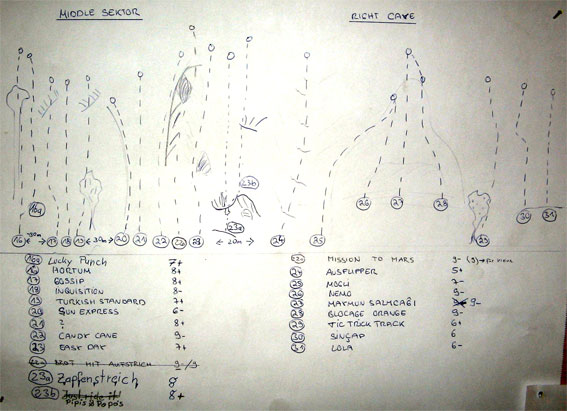 MIDDLE SEKTOR
RIGHT CAVE
16a
23b
23a
26 27 28
16 ←30m→ 17 18 19 ←30m→ 20 21 22 22a 23 ←20m→ 24 25 29 30 31
16a Lucky Punch 7+
16 HORTUM 8+
17 GOSSIP 8+
18 INQUISITION 8-
19 TURKISH STANDARD 7+
20 SUN EXPRESS 6-
21 ? 8+
22 CANDY CANE 9-
23 EASY DAY 7+
22a BROT MIT AUFSTRICH 9-/9
23a Zapfenstreich 8
23b Just ride it! 8+
Pipis & Popo's
MISSION TO MARS 9- (9)
24 AUSFLIPPER 5+
25 MOGLI 7-
26 NEMO 9-
27 MAYMUN SALINCAĞI 9-
28 BLOCAGE ORANGE 9-
29 TIC TRICK TRACK 6+
30 SINÇAP 6
31 LOLA 6-